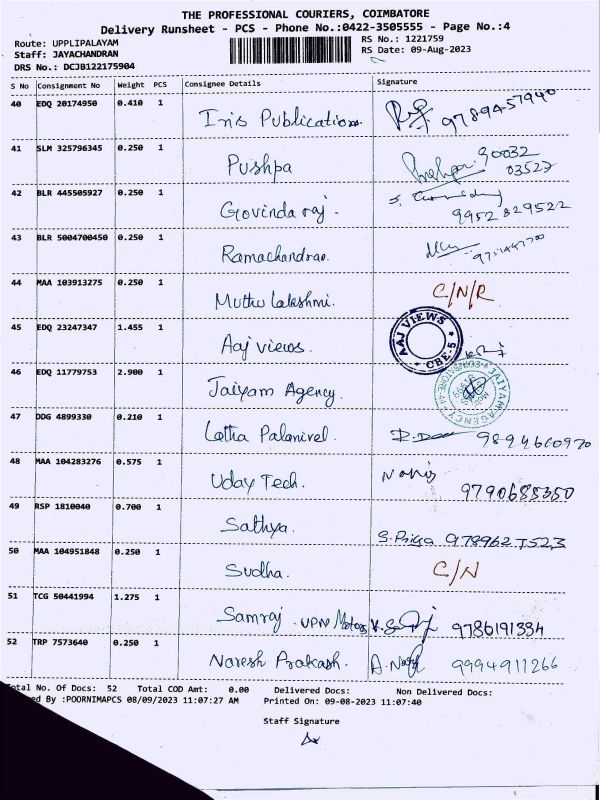 THE PROFESSIONAL COURIERS, COIMBATORE
Delivery Runsheet - PCS - Phone No.:0422-3505555 - Page No.:4
Route: UPPLIPALAYAM RS No.: 1221759
Staff: JAYACHANDRAN RS Date: 09-Aug-2023
DRS No.: DCJB122175904
S No Consignment No Weight PCS Consignee Details Signature
40 EDQ 20174950 0.410 1 Iris Publications 9789457940
41 SLM 325796345 0.250 1 Pushpa Pushpa 90032 03527
42 BLR 445505927 0.250 1 Govinda raj. 9952829522
43 BLR 5004700450 0.250 1 Ramachandran
44 MAA 103913275 0.250 1 Muthu Lakshmi. C/N/R
45 EDQ 23247347 1.455 1 Aaj views. AAJ VIEWS CBE-5
46 EDQ 11779753 2.900 1 Jaiyam Agency. JAIYAM AGENCY
47 DDG 4899330 0.210 1 Latha Palanivel 9894660970
48 MAA 104283276 0.575 1 Uday Tech. 9790688350
49 RSP 1810040 0.700 1 Sathya. S. Priya 9789627523
50 MAA 104951848 0.250 1 Sudha. C/N
51 TCG 50441994 1.275 1 Samraj. UPN Motors 9786191334
52 TRP 7573640 0.250 1 Naresh Prakash. 9994911266
Total No. Of Docs: 52 Total COD Amt: 0.00 Delivered Docs: Non Delivered Docs:
By :POORNIMAPCS 08/09/2023 11:07:27 AM Printed On: 09-08-2023 11:07:40
Staff Signature